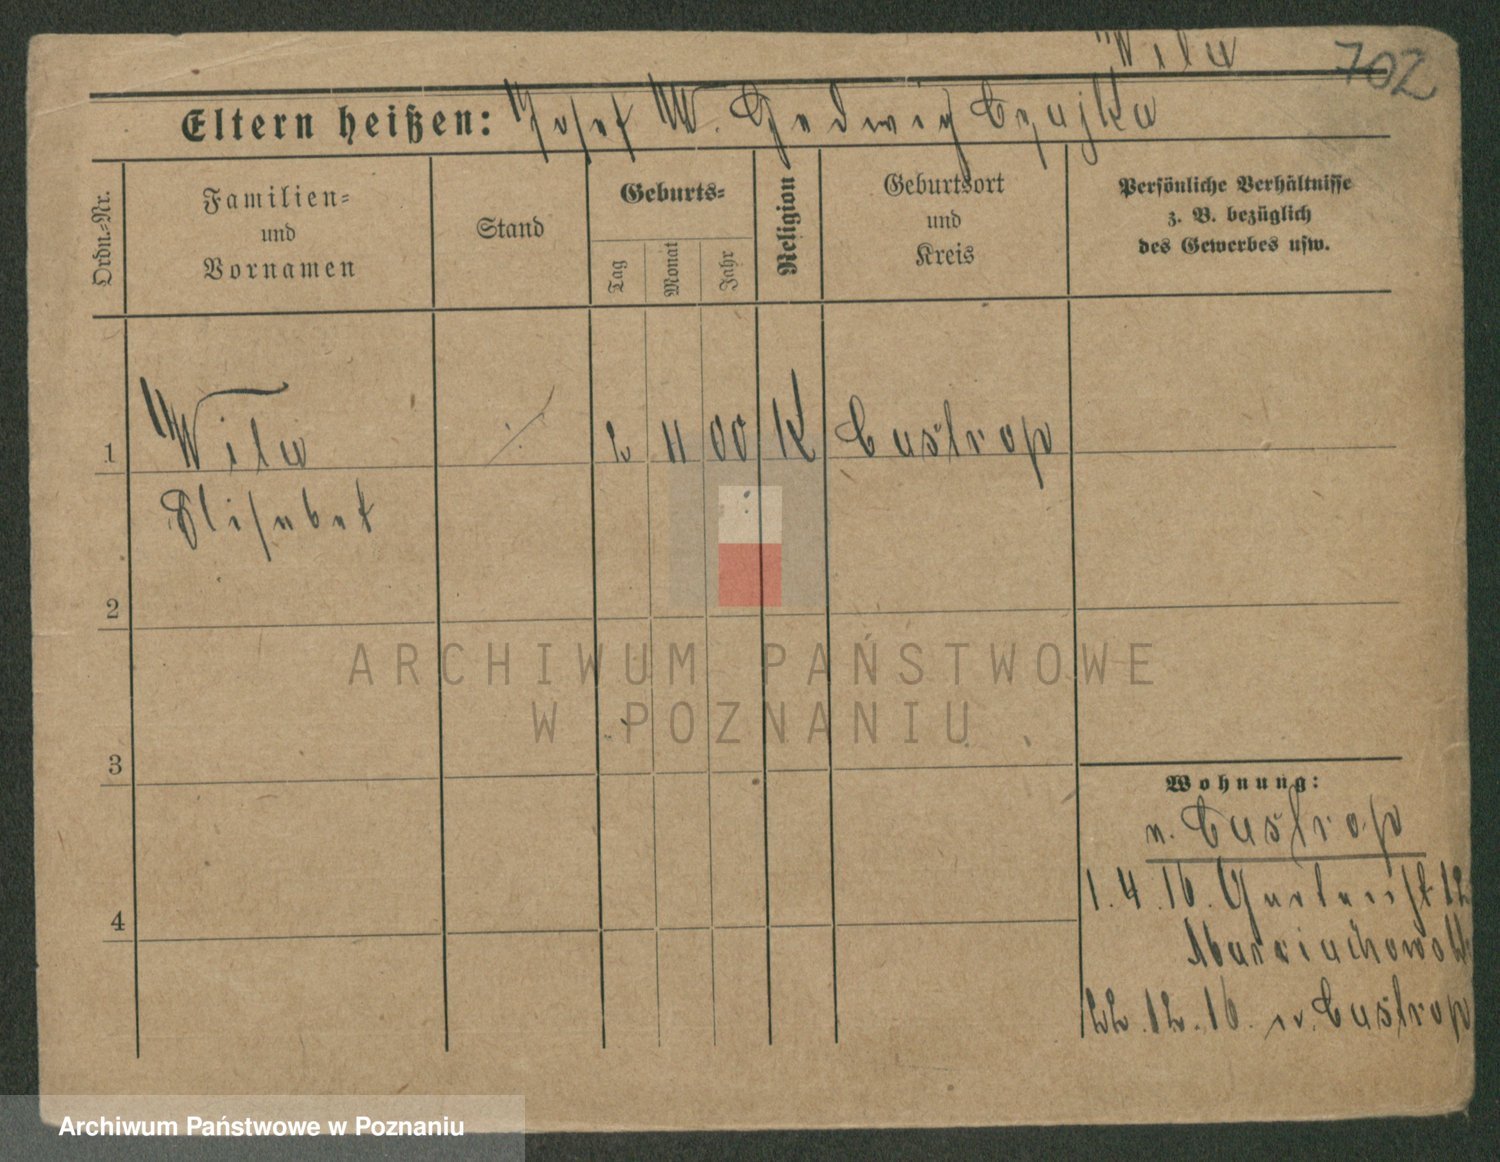 Wila
702
Eltern heißen: Josef W. Hedwig Czajka
Ordn.-Nr.
Familien-
und
Vornamen
Stand
Geburts-
Tag
Monat
Jahr
Religion
Geburtsort
und
Kreis
Persönliche Verhältnisse
z. B. bezüglich
des Gewerbes usw.
1 Wila ./. 2 11 00 K Castrop
Elisabet
2
3
4
Wohnung:
n. Castrop
1.4.16. 12
22.12.16. n. Castrop
ARCHIWUM PAŃSTWOWE
W POZNANIU
Archiwum Państwowe w Poznaniu